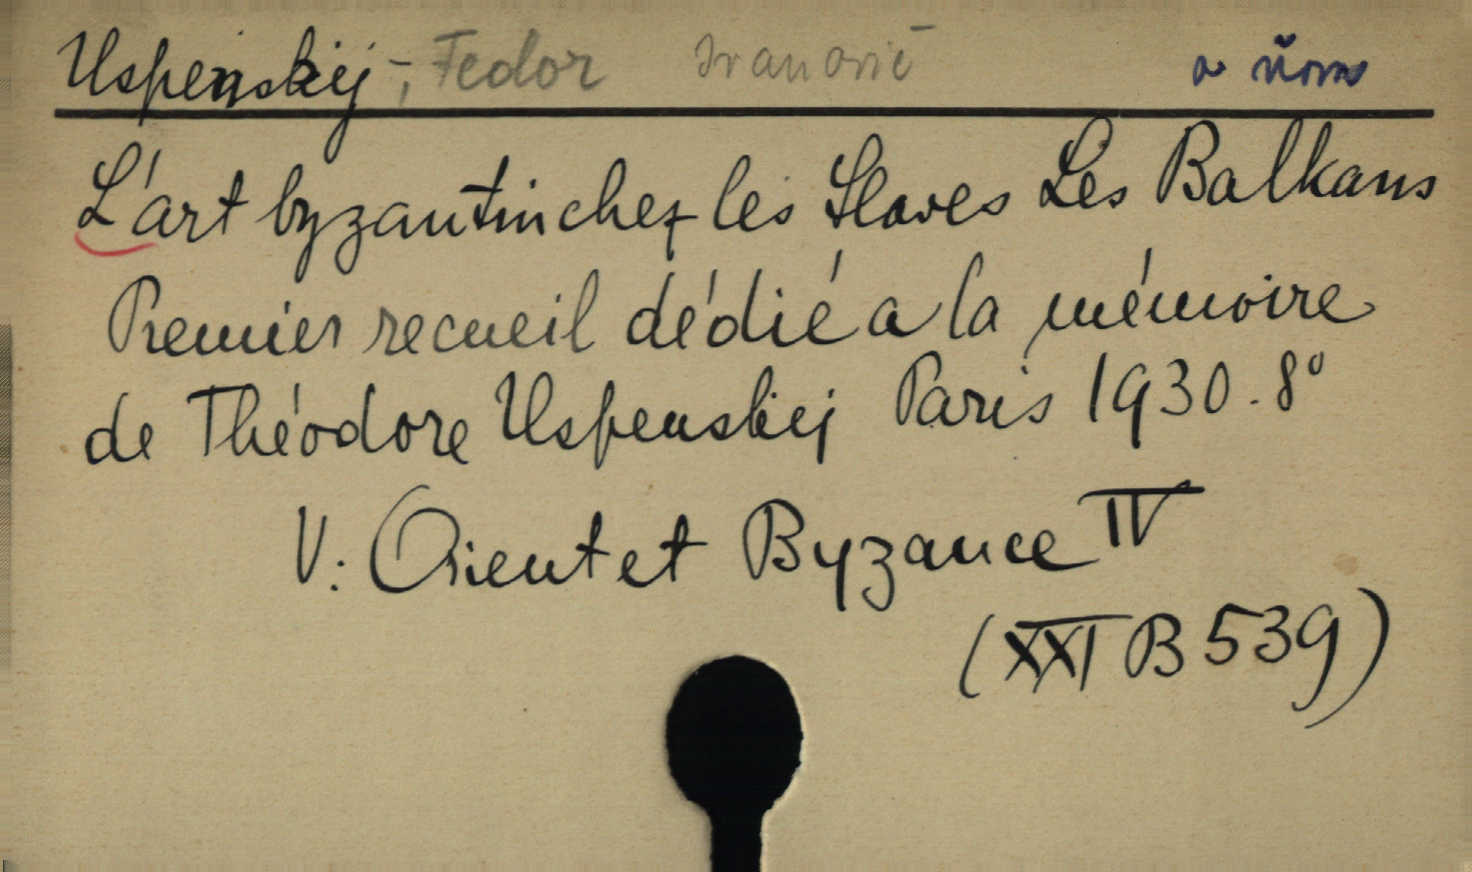 Uspenskij-, Fedor Ivanovič
L'art byzantin chez les Slaves Les Balkans
Premier recueil dédié a la mémoire
de Théodore Uspenskij Paris 1930. 8°
V: Orient et Byzance IV
(XXI B 539)